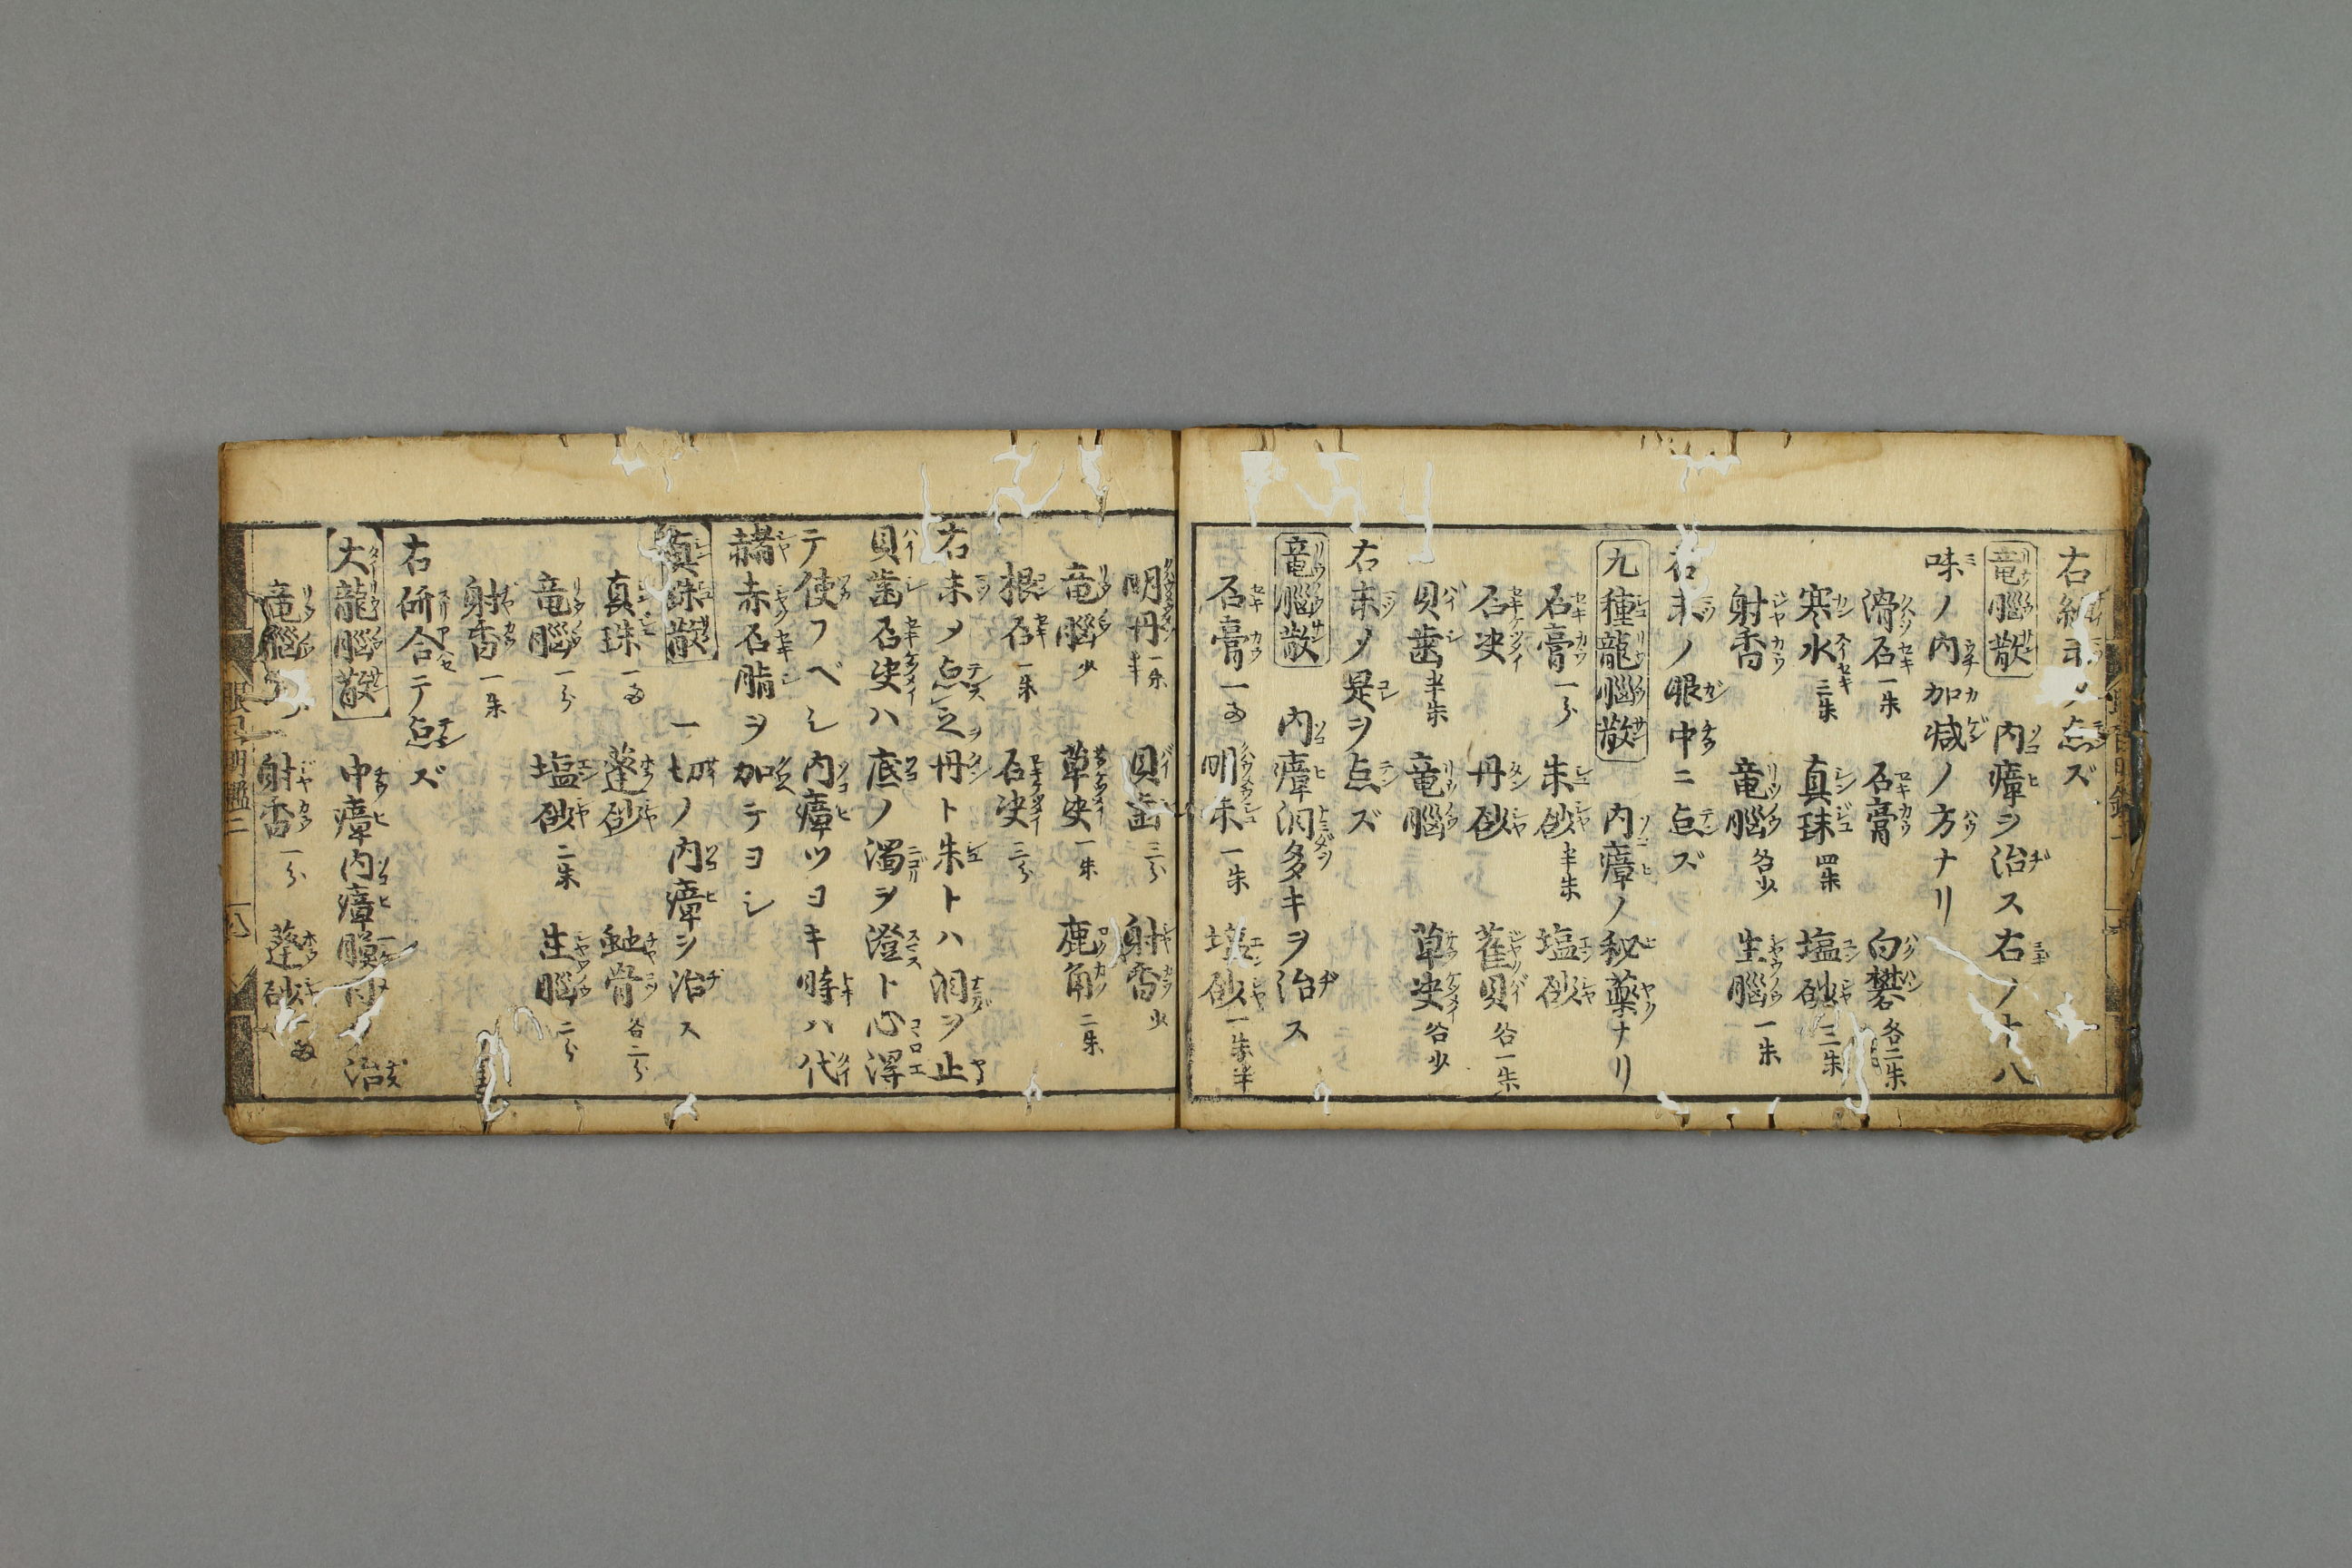 右細末メ点ズ
竜腦散 内瘴ヲ治ス右ノ十八
味ノ内加减ノ方ナリ
滑石一朱 石膏 白礬各二朱
寒水二朱 真珠四朱 塩砂三朱
射香 竜腦各少 生腦一朱
右末ノ眼中ニ点ズ
九種龍腦散 内瘴ノ秘薬ナリ
石膏一分 朱砂半朱 塩砂
石决 丹砂 萑貝各一朱
貝歯半朱 竜腦 草决各少
右末メ是ヲ点ズ
竜腦散 内瘴泪多キヲ治ス
石膏一匁 明朱一朱 塩砂一朱半
明丹一朱半 貝歯三分 射香少
竜腦少 草决一朱 鹿角二朱
根石一朱 石决三分
右末メ点之丹ト朱トハ泪ヲ止
貝歯石决ハ底ノ濁ヲ澄ト心得
テ使フベシ内瘴ツヨキ時ハ代
赭赤石脂ヲ加テヨシ
真珠散 一切ノ内瘴ヲ治ス
真珠一匁 蓬砂 虵骨各二分
竜腦一分 塩砂二朱 生腦二分
射香一朱
右研合テ点ズ
大龍腦散 中瘴内瘴 治
竜腦 射香一分 蓬砂 匁
眼目明鑑二 八